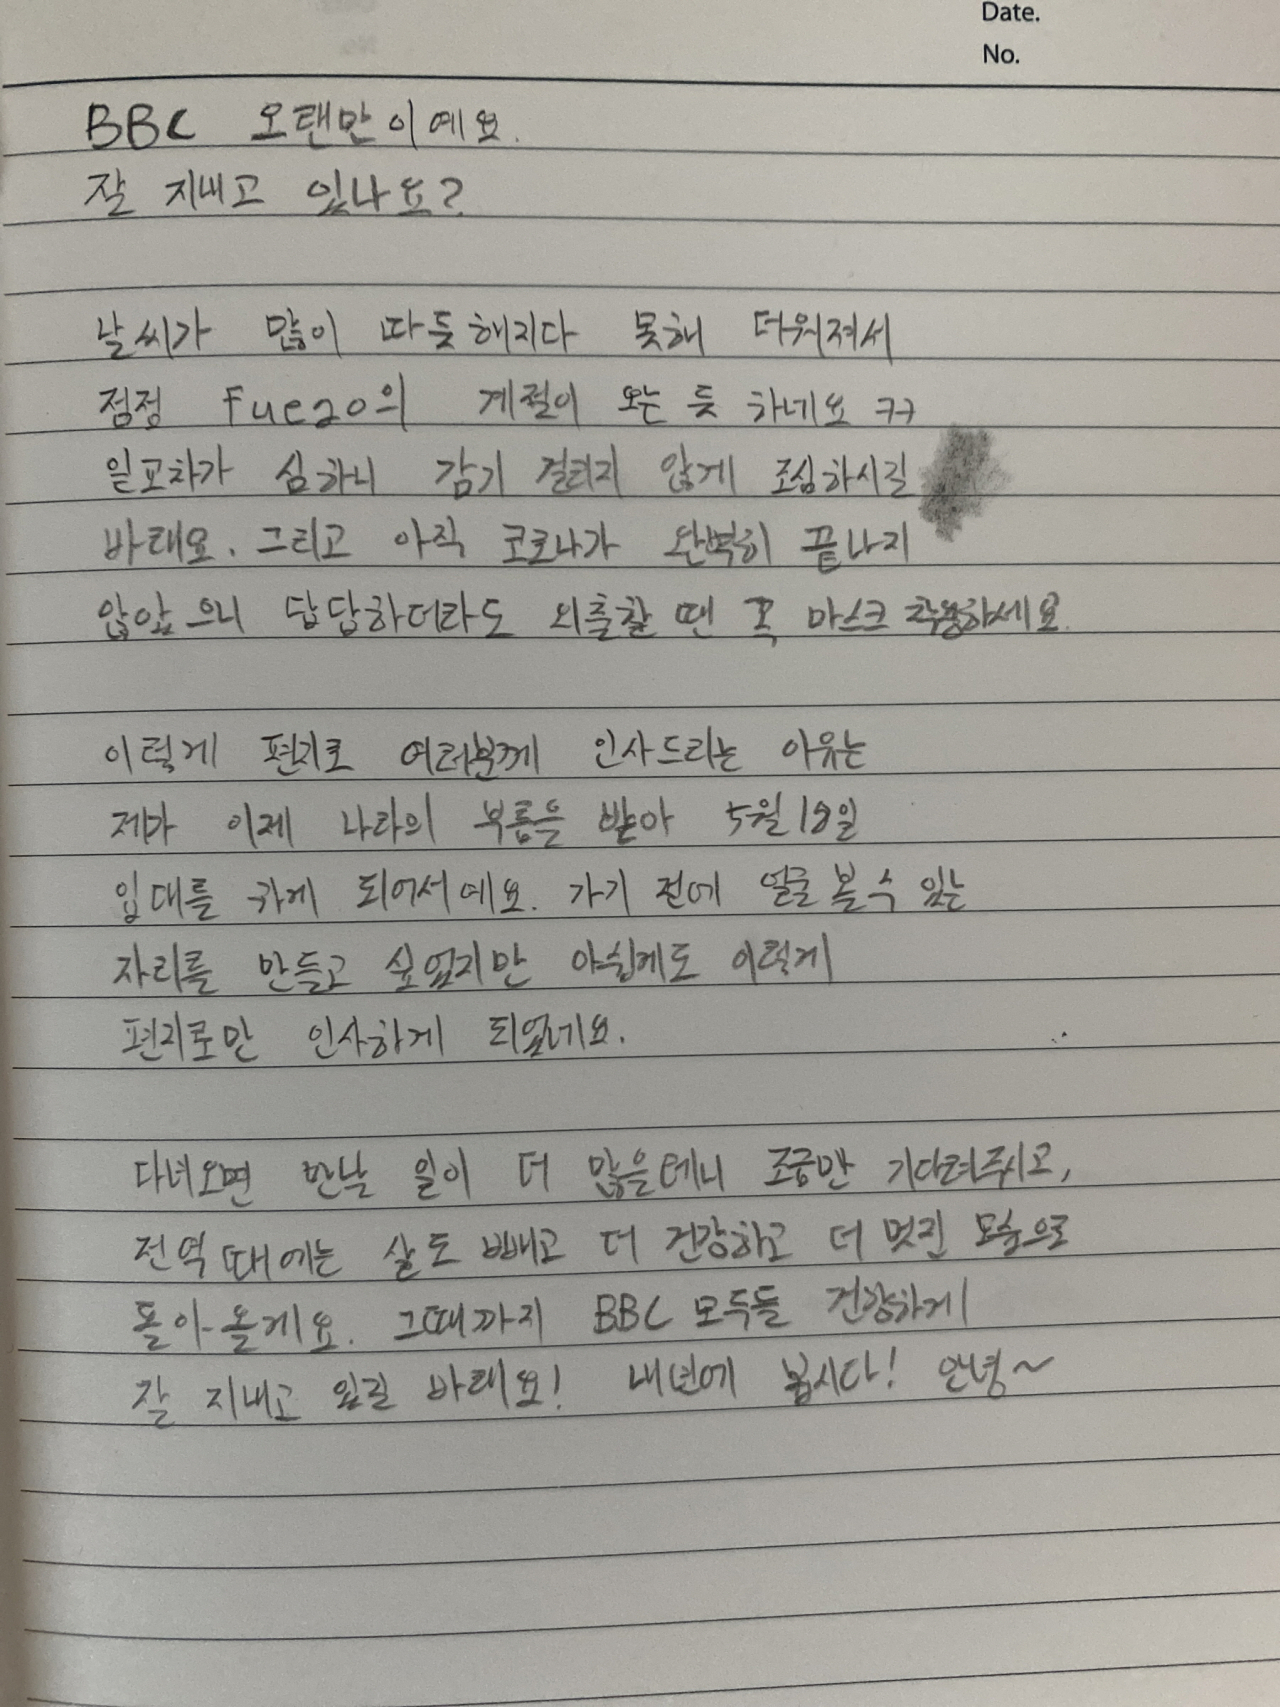 Date.
No.
BBC 오랜만이예요.
잘 지내고 있나요?
날씨가 많이 따듯해지다 못해 더워져서
점점 Fuego의 계절이 오는 듯 하네요 ㅋㅋ
일교차가 심하니 감기 걸리지 않게 조심하시길
바래요. 그리고 아직 코로나가 완벽히 끝나지
않았으니 답답하더라도 외출할 땐 꼭 마스크 착용하세요.
이렇게 편지로 여러분께 인사드리는 이유는
제가 이제 나라의 부름을 받아 5월 18일
입대를 하게 되어서예요. 가기 전에 얼굴 볼 수 있는
자리를 만들고 싶었지만 아쉽게도 이렇게
편지로만 인사하게 되었네요.
다녀오면 만날 일이 더 많을테니 조금만 기다려주시고,
전역 때에는 살도 빼고 더 건강하고 더 멋진 모습으로
돌아 올게요. 그때까지 BBC 모두들 건강하게
잘 지내고 있길 바래요! 내년에 봅시다! 안녕~